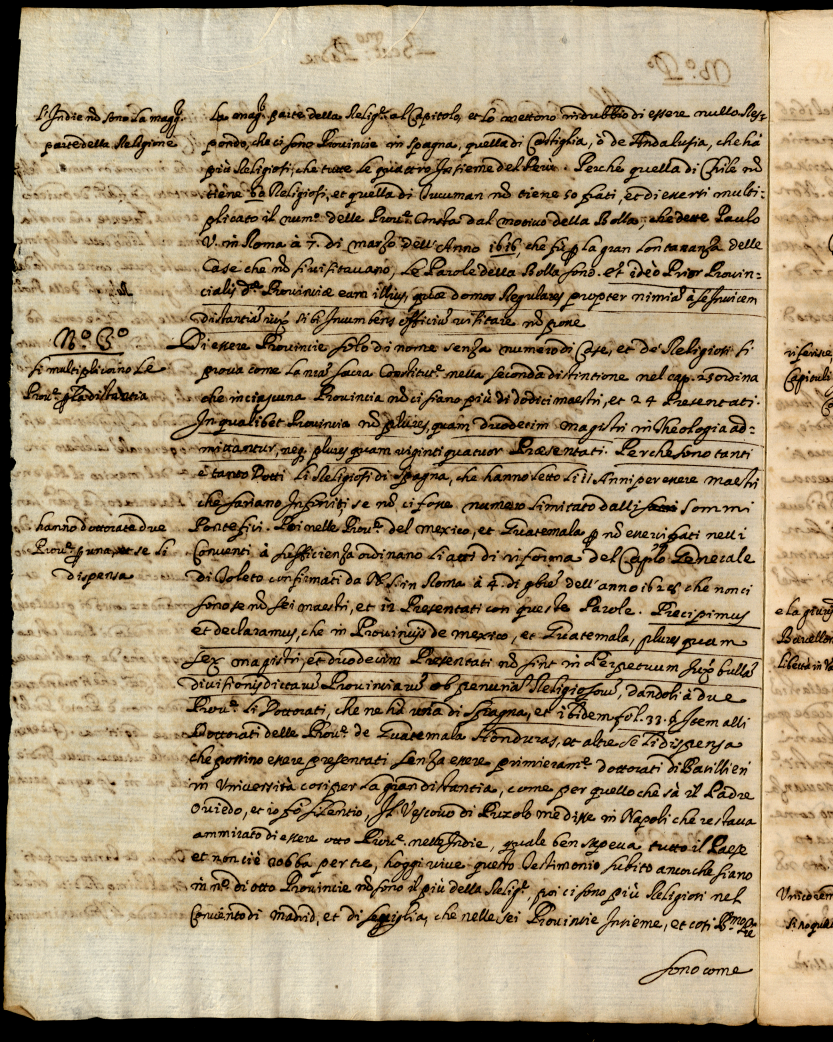 L'Indie nõ sono La magg.r
parte della Religione
La mag.r parte della Relig.e al Capitolo, et Lo mettono in dubbio di essere nullo Res-
pondo, che ci sono Provincie in Spagna, quella di Castiglia, ò de Andalusia, che hà
più Religiosi, che tutte Le quattro Insieme del Perù. Perche quella di Chile nõ
tiene 60 Religiosi, et quella di Tucuman nõ tiene 50 frati, et di essersi multi-
plicato il num.o delle Prov.e Consta dal motivo della Bolla, che dette Paulo
V. in Roma à 7. di marzo dell'Anno 1616, che fù p la gran Lontananza delle
Case che nõ si visitavano, Le Parole della Bolla sono. et ideò Prior Provin-
cialis d.æ Provinciæ earu illius, quæ domos Regulares propter nimiã à se Invicem
distantiã iuxª sibi Incumbens officiũ visitare nõ pone
N.o 3.o
si multiplicoino Le
Prov.e p La distantia
Di essere Provincie solo di nome senza numero di Case, et de' Religiosi si
prova come La nrã sacra Constitut.e nella seconda distintione nel cap. 25 ordina
che in ciascuna Provincia nõ ci siano più di dodici maestri, et 24 Presentati.
In qualibet Provincia nõ plures, quam duodecim magistri in theologia ad-
mittantur, neq. plures quam viginti quatuor Præsentati. Perche sono tanti
è tanto Dotti Li Religiosi di Spagna, che hanno Letto Li 11 Anni per essere maestri
che sariano Infiniti, se nõ ci fosse numero Limitato dalli sommi
Pontefici. Poi nelle Prov.e del mexico, et Guatemala p nõ esservi frati nelli
hanno dottorate due
Prov.e p una, et se li
dispensa
Conventi à sufficienza ordinano Li atti di riforma del Caplo Generale
di Toleto confirmati da N.S. in Roma à 4. di 9bre dell'anno che non ci
sono se nõ sei maestri, et 12 Presentati con queste Parole. Precipimus
et declaramus, che in Provincijs de mexico, et Guatemala, plures quam
sex magistri, et duodecim Presentati nõ sint in Perpetuum Juxª bullã
divisionis dictarũ Provinciarũ ob penuriã Religiosorũ, dandoli à due
Prov.e Li Dottorati, che ne hà una di Spagna, et ibidem fol. 33. Item alli
Dottorati delle Prov.e de Guatemala Honduras, et altre se Li dispensa
che possino essere presentati senza essere primieram.e dottorati di Basillieri
in Università cosi per La gran distantia, come per quello che sà il Padre
Oviedo, et io fò silentio, Il Vescovo di Puzolo me disse in Napoli che restava
ammirato di essere otto Prov.e nelle Indie, quale ben sapeva tutto il Paese
et non ci è robba per tre, hoggi vive questo Testimonio subito ancor che siano
in n.o di otto Provincie nõ sono il più della Relig.e, poi ci sono più Religiosi nel
Convento di Madrid, et di Seviglia, che nelle sei Provincie Insieme, et cosi R.mo P.re
sono come